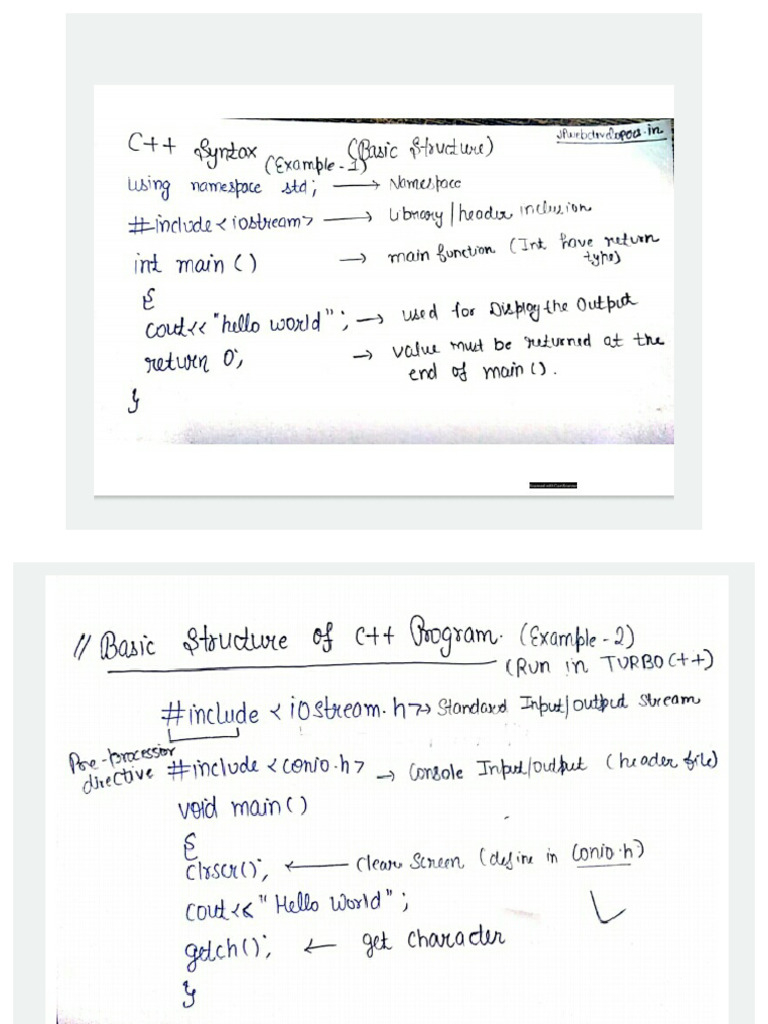 C++ Syntax (Basic Structure)
(Example-1)
using namespace std; → Namespace
#include<iostream> → Library/header inclusion
int main() → main function (Int have return type)
{
cout<<"hello world"; → used for Display the Output
return 0; → value must be returned at the
end of main().
}
// Basic Structure of C++ Program. (Example-2)
(Run in TURBO C++)
#include <iostream.h> → Standard Input/output stream
Pre-processor
directive
#include<conio.h> → Console Input/output (header file)
void main()
{
clrscr(); ← Clear Screen (define in conio.h)
cout<<"Hello World";
getch(); ← get character
}